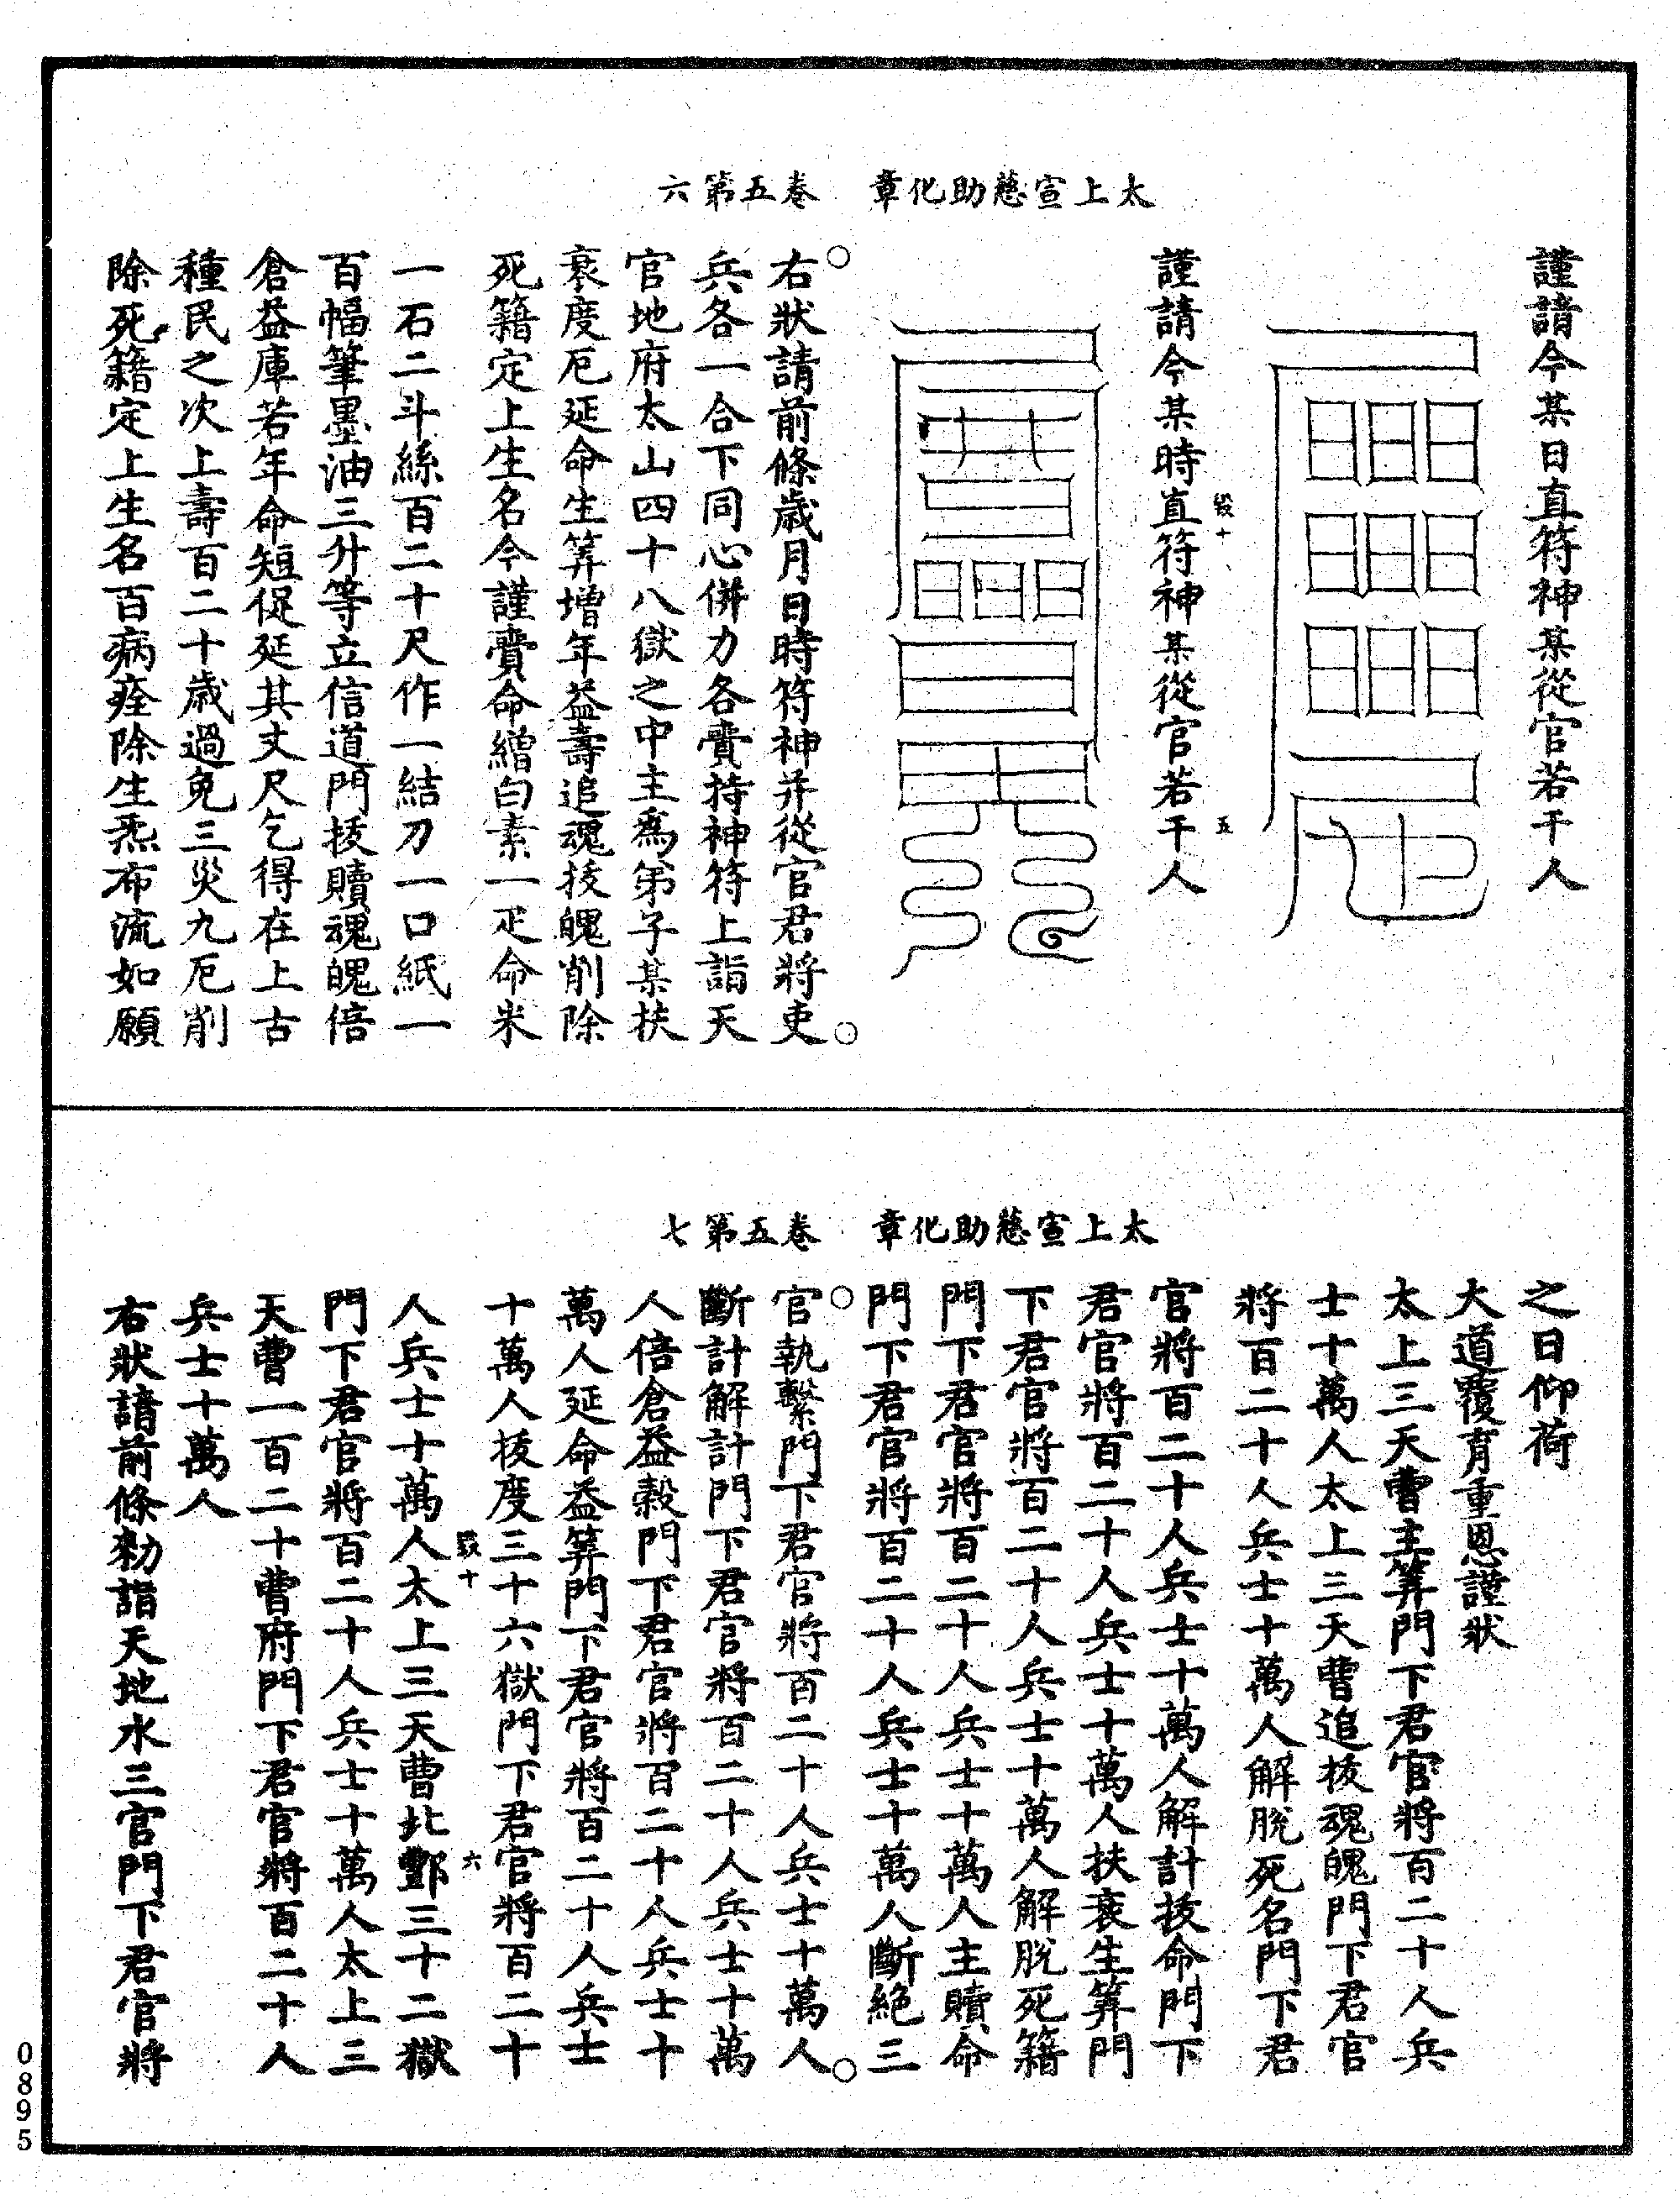 太上宣慈助化章　卷五第六
謹請今某日直符神某從官若干人
謹請今某時直符神某從官若干人
右狀請前條歲月日時符神并從官君將吏
兵各一合下同心併力各賷持神符上詣天
官地府太山四十八獄之中主爲弟子某扶
衰度厄延命生筭增年益壽追魂拔魄削除
死籍定上生名今謹賷命繒白素一疋命米
一石二斗絲百二十尺作一結刀一口紙一
百幅筆墨油三升等立信道門拔贖魂魄倍
倉益庫若年命短促延其丈尺乞得在上古
種民之次上壽百二十歲過免三災九厄削
除死籍定上生名百病痊除生炁布流如願
太上宣慈助化章　卷五第七
之日仰荷
大道覆育重恩謹狀
太上三天曹主筭門下君官將百二十人兵
士十萬人太上三天曹追拔魂魄門下君官
將百二十人兵士十萬人解脫死名門下君
官將百二十人兵士十萬人解計拔命門下
君官將百二十人兵士十萬人扶衰生筭門
下君官將百二十人兵士十萬人解脫死籍
門下君官將百二十人兵士十萬人主贖命
門下君官將百二十人兵士十萬人斷絕三
官執繫門下君官將百二十人兵士十萬人
斷計解計門下君官將百二十人兵士十萬
人倍倉益穀門下君官將百二十人兵士十
萬人延命益筭門下君官將百二十人兵士
十萬人拔度三十六獄門下君官將百二十
人兵士十萬人太上三天曹北酆三十二獄
門下君官將百二十人兵士十萬人太上三
天曹一百二十曹府門下君官將百二十人
兵士十萬人
右狀請前條勑詣天地水三官門下君官將
0895